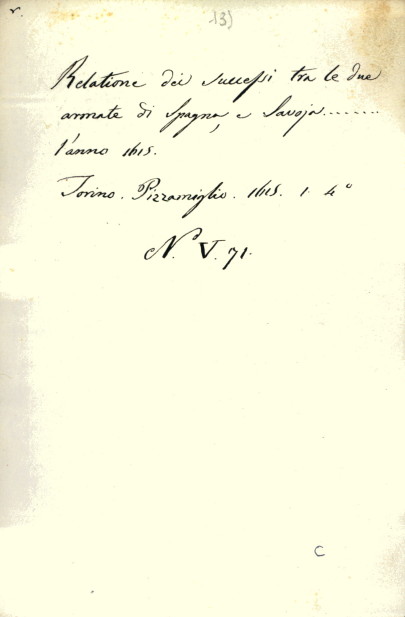 r.
13)
Relatione dei successi tra le due
armate di Spagna, e Savoja.......
l'anno 1615.
Torino. Pizzamiglio. 1615. 1. 4º
N. V. 71.
C